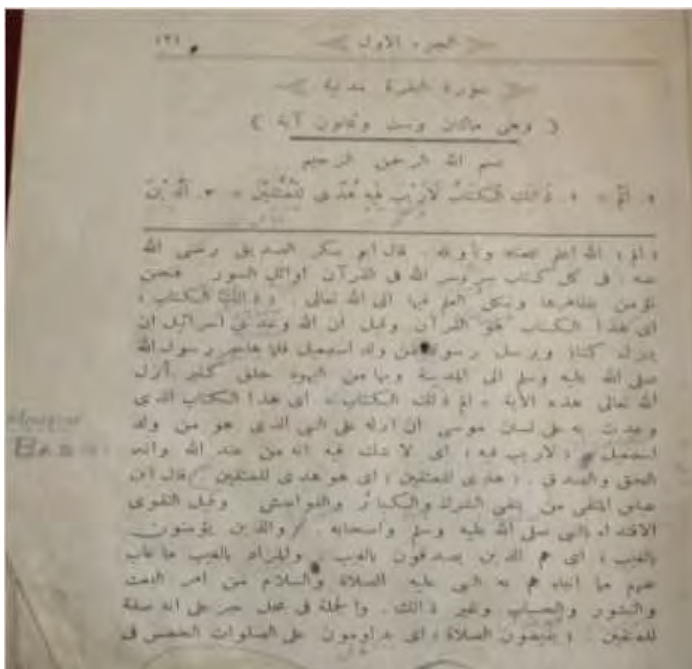 الجزء الاول ١٣١
سورة البقرة مدنية
( وهى مائتان وست وثمانون آية )
بسم الله الرحمن الرحيم
١. الٓمٓ ٠ ٢. ذَلِكَ الْكِتَابُ لَارَيْبَ فِيهِ هُدًى لِلْمُتَّقِينَ ٠ ٣. اَلَّذِينَ
« الم » الله اعلم بمعناه وتأويله . قال ابو بكر الصديق رضى الله
عنه . فى كل كتاب سر وسر الله فى القرآن اوائل السور . فنحن
نؤمن بظاهرها ونكل العلم فيها الى الله تعالى . « ذلك الكتاب »
اى هذا الكتاب هو القرآن وقيل ان الله وعد بنى اسرائيل ان
ينزل كتابا ويرسل رسولا من ولد اسمعيل فلما هاجر رسول الله
صلى الله عليه وسلم الى المدينة وبها من اليهود خلق كثير أنزل
الله تعالى هذه الآية « الم ذلك الكتاب » اى هذا الكتاب الذى
وعدت به على لسان موسى ان انزله على النبى الذى هو من ولد
اسمعيل « لاريب فيه » اى لا شك فيه انه من عند الله وانه
الحق والصدق . « هدى للمتقين » اى هو هدى للمتقين قال ابن
عباس المتقى من يتقى الشرك والكبائر والفواحش وقيل التقوى
الاقتداء بالنبى صلى الله عليه وسلم واصحابه . « والذين يؤمنون
بالغيب » اى هم الذين يصدقون بالغيب . والمراد بالغيب ما غاب
عنهم ما انبأهم به النبى عليه الصلاة والسلام من امر البعث
والنشور والحساب وغير ذلك . والجملة فى محل جر على انه صفة
للمتقين . « يقيمون الصلاة » اى يداومون على الصلوات الخمس فى